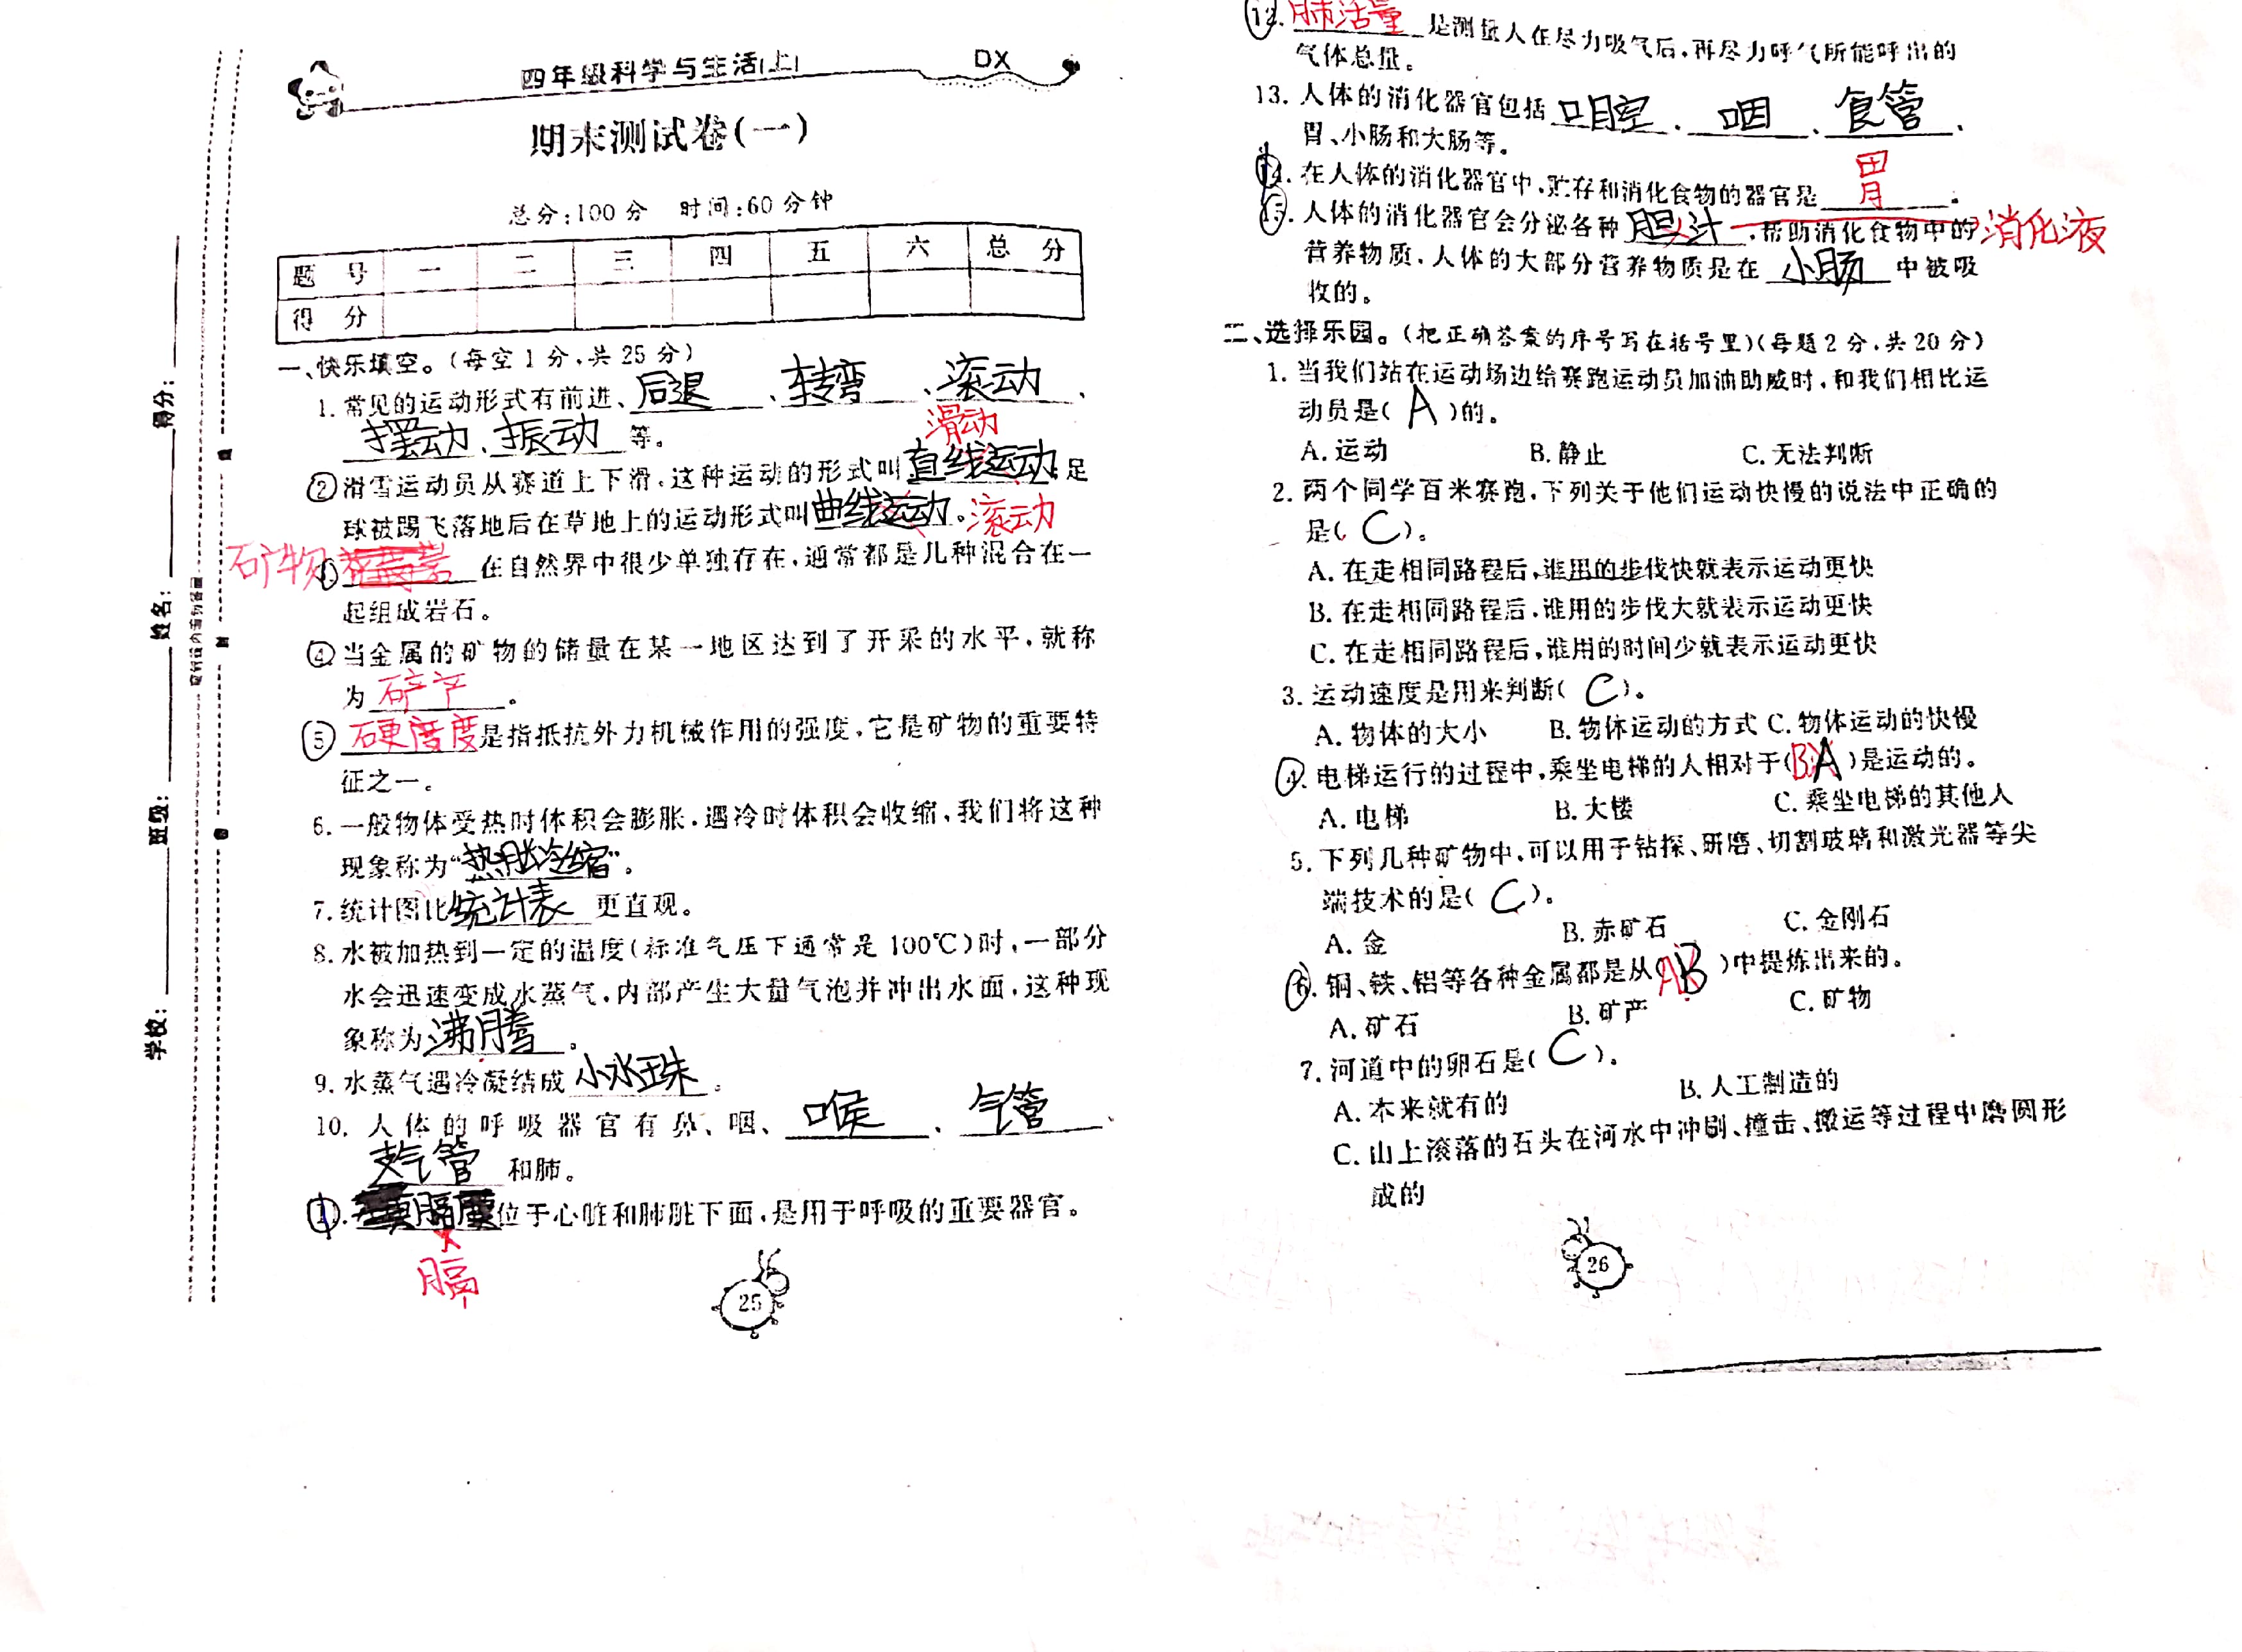 四年级科学与生活(上)
DX
期末测试卷(一)
总分:100分 时间:60分钟
题号 一 二 三 四 五 六 总分
得分
学校: 班级: 姓名: 得分:
一、快乐填空。(每空1分,共25分)
1. 常见的运动形式有前进、后退、转弯、滚动、
摆动、振动等。
滑动
② 滑雪运动员从赛道上下滑,这种运动的形式叫直线运动;足
球被踢飞落地后在草地上的运动形式叫曲线运动。滚动
石矿物 在自然界中很少单独存在,通常都是几种混合在一
起组成岩石。
④ 当金属的矿物的储量在某一地区达到了开采的水平,就称
为矿产。
⑤ 硬度是指抵抗外力机械作用的强度,它是矿物的重要特
征之一。
6. 一般物体受热时体积会膨胀,遇冷时体积会收缩,我们将这种
现象称为“热胀冷缩”。
7. 统计图比统计表更直观。
8. 水被加热到一定的温度(标准气压下通常是100℃)时,一部分
水会迅速变成水蒸气,内部产生大量气泡并冲出水面,这种现
象称为沸腾。
9. 水蒸气遇冷凝结成小水珠。
10. 人体的呼吸器官有鼻、咽、喉、气管、
支气管和肺。
11. 膈膜位于心脏和肺脏下面,是用于呼吸的重要器官。
膈
25
12. 肺活量是测量人在尽力吸气后,再尽力呼气所能呼出的
气体总量。
13. 人体的消化器官包括口腔、咽、食管、
胃、小肠和大肠等。
14. 在人体的消化器官中,贮存和消化食物的器官是胃。
15. 人体的消化器官会分泌各种胆汁,帮助消化食物中的消化液
营养物质,人体的大部分营养物质是在小肠中被吸
收的。
二、选择乐园。(把正确答案的序号写在括号里)(每题2分,共20分)
1. 当我们站在运动场边给赛跑运动员加油助威时,和我们相比运
动员是(A)的。
A. 运动 B. 静止 C. 无法判断
2. 两个同学百米赛跑,下列关于他们运动快慢的说法中正确的
是(C)。
A. 在走相同路程后,谁用的步伐快就表示运动更快
B. 在走相同路程后,谁用的步伐大就表示运动更快
C. 在走相同路程后,谁用的时间少就表示运动更快
3. 运动速度是用来判断(C)。
A. 物体的大小 B. 物体运动的方式 C. 物体运动的快慢
4. 电梯运行的过程中,乘坐电梯的人相对于(BA)是运动的。
A. 电梯 B. 大楼 C. 乘坐电梯的其他人
5. 下列几种矿物中,可以用于钻探、研磨、切割玻璃和激光器等尖
端技术的是(C)。
A. 金 B. 赤矿石 C. 金刚石
6. 铜、铁、铝等各种金属都是从(AB)中提炼出来的。
A. 矿石 B. 矿产 C. 矿物
7. 河道中的卵石是(C)。
A. 本来就有的 B. 人工制造的
C. 山上滚落的石头在河水中冲刷、撞击、搬运等过程中磨圆形
成的
26